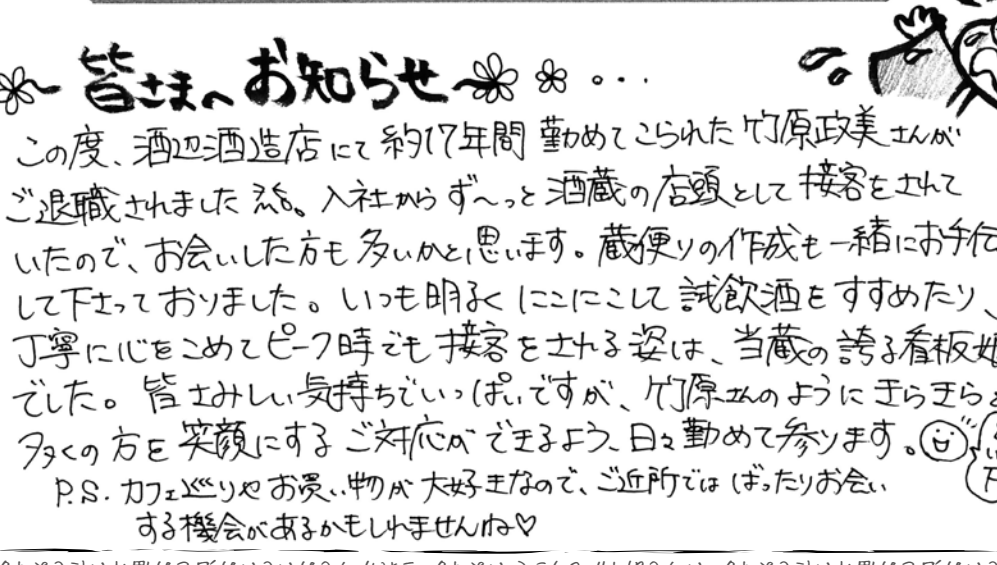 皆さまへ お知らせ
この度、酒辺酒造店にて約17年間 勤めてこられた竹原政美さんが
ご退職されました。入社からず〜っと酒蔵の店頭として接客をされて
いたので、お会いした方も多いかと思います。蔵便りの作成も一緒にお手伝
して下さっておりました。いつも明るくにこにこして試飲酒をすすめたり、
丁寧に心をこめてピーク時でも接客をされる姿は、当蔵の誇る看板娘
でした。皆さみしい気持ちでいっぱいですが、竹原さんのようにきらきらと
多くの方を笑顔にするご対応ができるよう、日々勤めて参ります。
P.S. カフェ巡りやお買い物が大好きなので、ご近所ではばったりお会い
する機会があるかもしれませんね♡